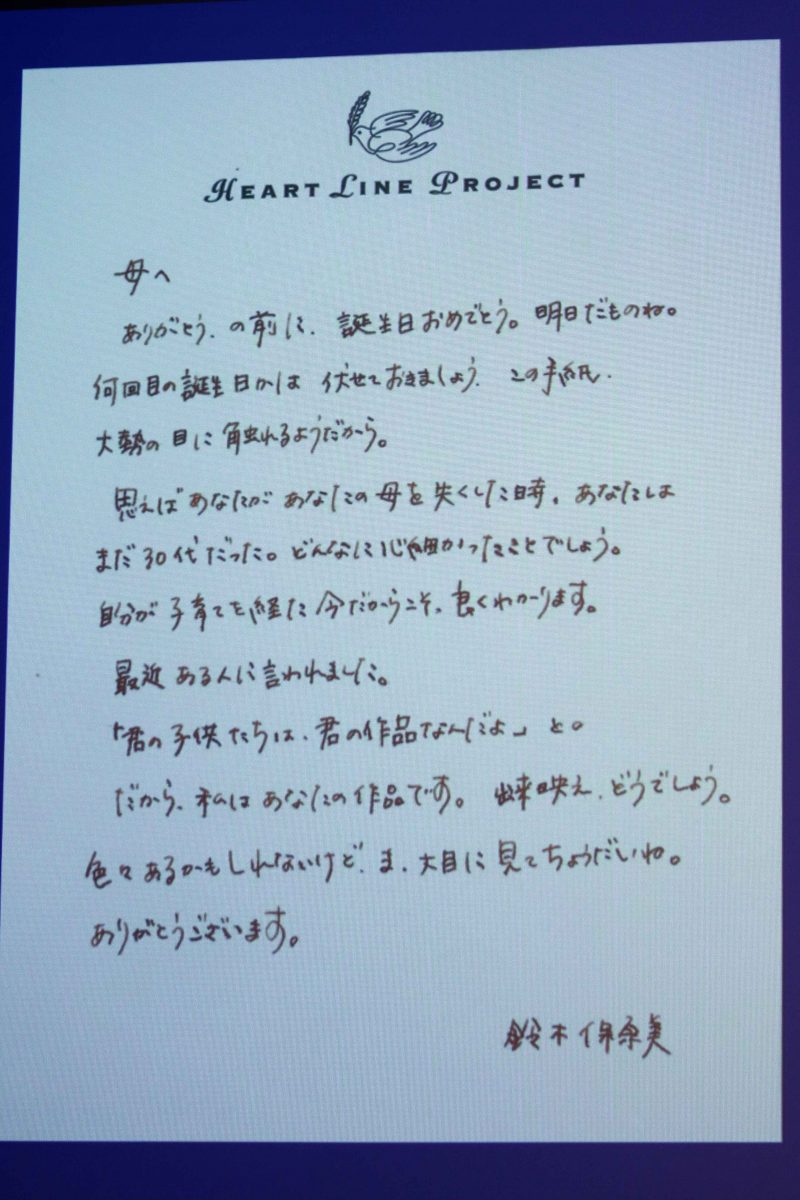 HEART LINE PROJECT
母へ
ありがとう、の前に、誕生日おめでとう。明日だものね。
何回目の誕生日かは 伏せておきましょう、この手紙、
大勢の目に触れるようだから。
思えばあなたが あなたの母を失くした時、あなたは
まだ30代だった。どんなに心細かったことでしょう。
自分が子育てを経た今だからこそ、良くわかります。
最近 ある人に言われました。
「君の子供たちは、君の作品なんだよ」と。
だから、私はあなたの作品です。 出来映え、どうでしょう。
色々あるかもしれないけど、ま、大目に見てちょうだいね。
ありがとうございます。
鈴木保奈美